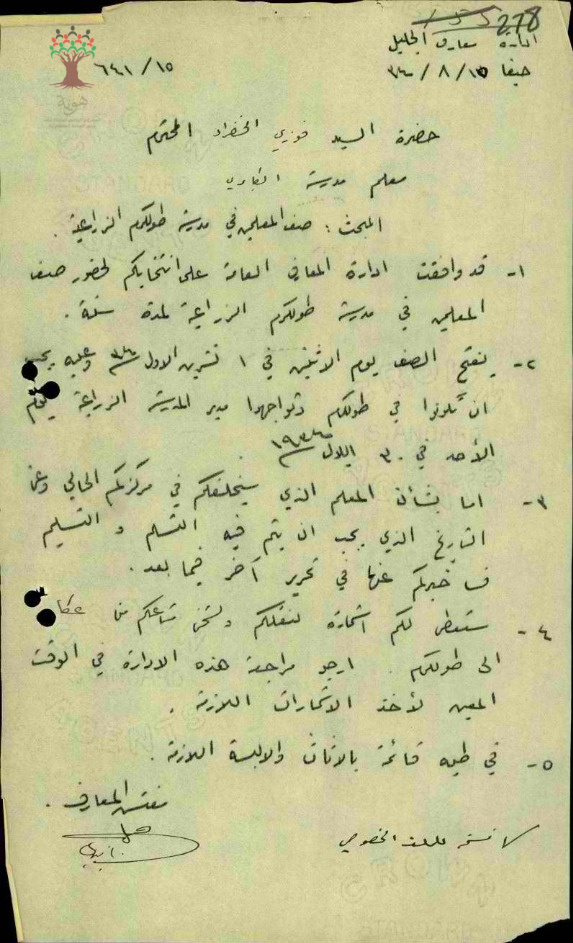 278
ادارة معارف الجليل
حيفا ١٥/٨/٣٤
٦٤١/١٥
هوية
حضرة السيد فوزي الخضراء المحترم
معلم مدرسة
المبحث : صف المعلمين في مدرسة طولكرم الزراعية .
١- قد وافقت ادارة المعارف العامة على انتخابكم لحضور صف
المعلمين في مدرسة طولكرم الزراعية لمدة سنة .
٢- يفتح الصف يوم الاثنين في ١ تشرين الاول ٣٤ وعليه يجب
ان تكونوا في طولكرم وتواجهوا مدير المدرسة الزراعية يوم
الأحد في ٣٠ ايلول ١٩٣٤
٣- اما بشأن المعلم الذي سيخلفكم في مركزكم الحالي وعن
التاريخ الذي يجب ان يتم فيه التسلم و التسليم
فسأخبركم عنها في تحرير آخر فيما بعد .
٤- ستعطى لكم استمارة لنقلكم ولشحن متاعكم من عكا
الى طولكرم . ارجو مراجعة هذه الادارة في الوقت
المعين لأخذ الاستمارات اللازمة .
٥- في طيه قائمة بالاثاث والالبسة اللازمة .
مفتش المعارف .
نسخة للملف الخصوصي